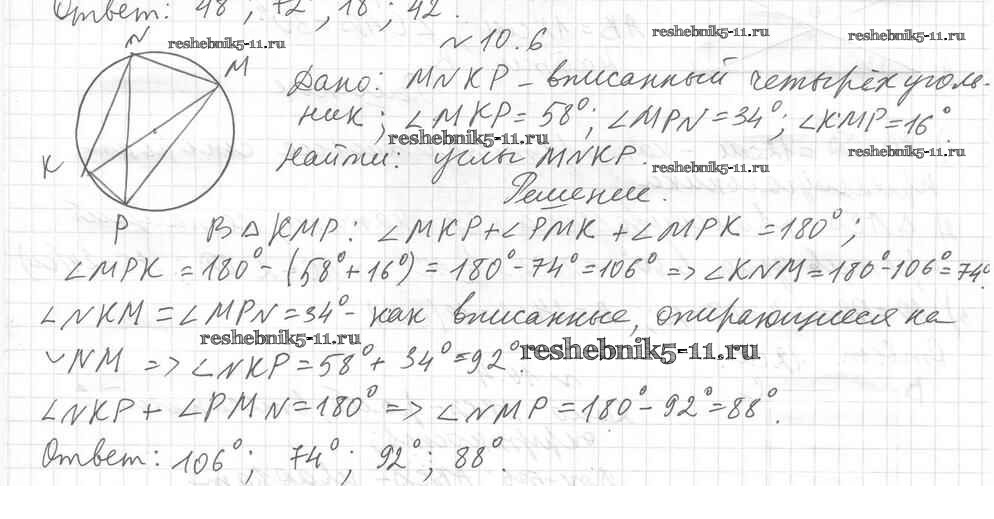 Ответ: 48°, 72°, 18°, 42°.
№ 10.6
reshebnik5-11.ru
reshebnik5-11.ru
reshebnik5-11.ru
N
M
K
P
Дано: MNKP – вписанный четырёхуголь-
ник; ∠MKP = 58°; ∠MPN = 34°; ∠KMP = 16°
reshebnik5-11.ru
Найти: углы MNKP.
reshebnik5-11.ru
reshebnik5-11.ru
Решение.
В △ KMP: ∠MKP + ∠PMK + ∠MPK = 180°;
∠MPK = 180° - (58° + 16°) = 180° - 74° = 106° => ∠KNM = 180° - 106° = 74°.
∠NKM = ∠MPN = 34° - как вписанные, опирающиеся на
reshebnik5-11.ru
◡NM => ∠NKP = 58° + 34° = 92°.
reshebnik5-11.ru
∠NKP + ∠PMN = 180° => ∠NMP = 180° - 92° = 88°.
Ответ: 106°; 74°; 92°; 88°.